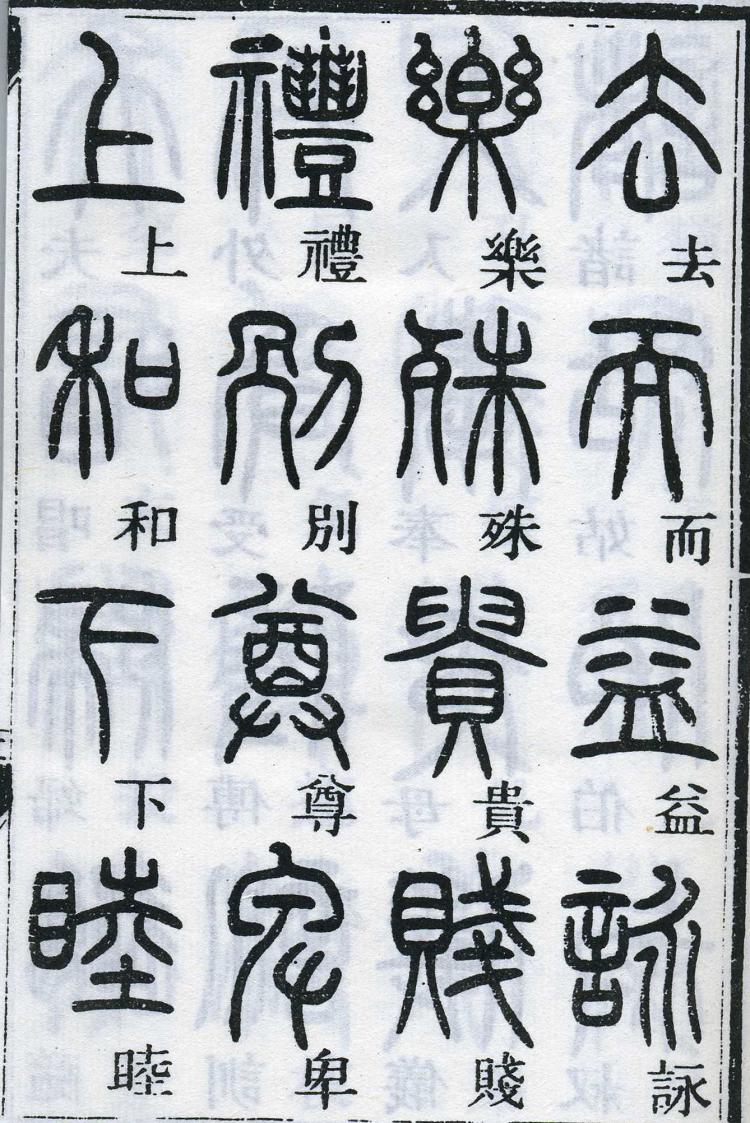 去而益詠
樂殊貴賤
禮別尊卑
上和下睦